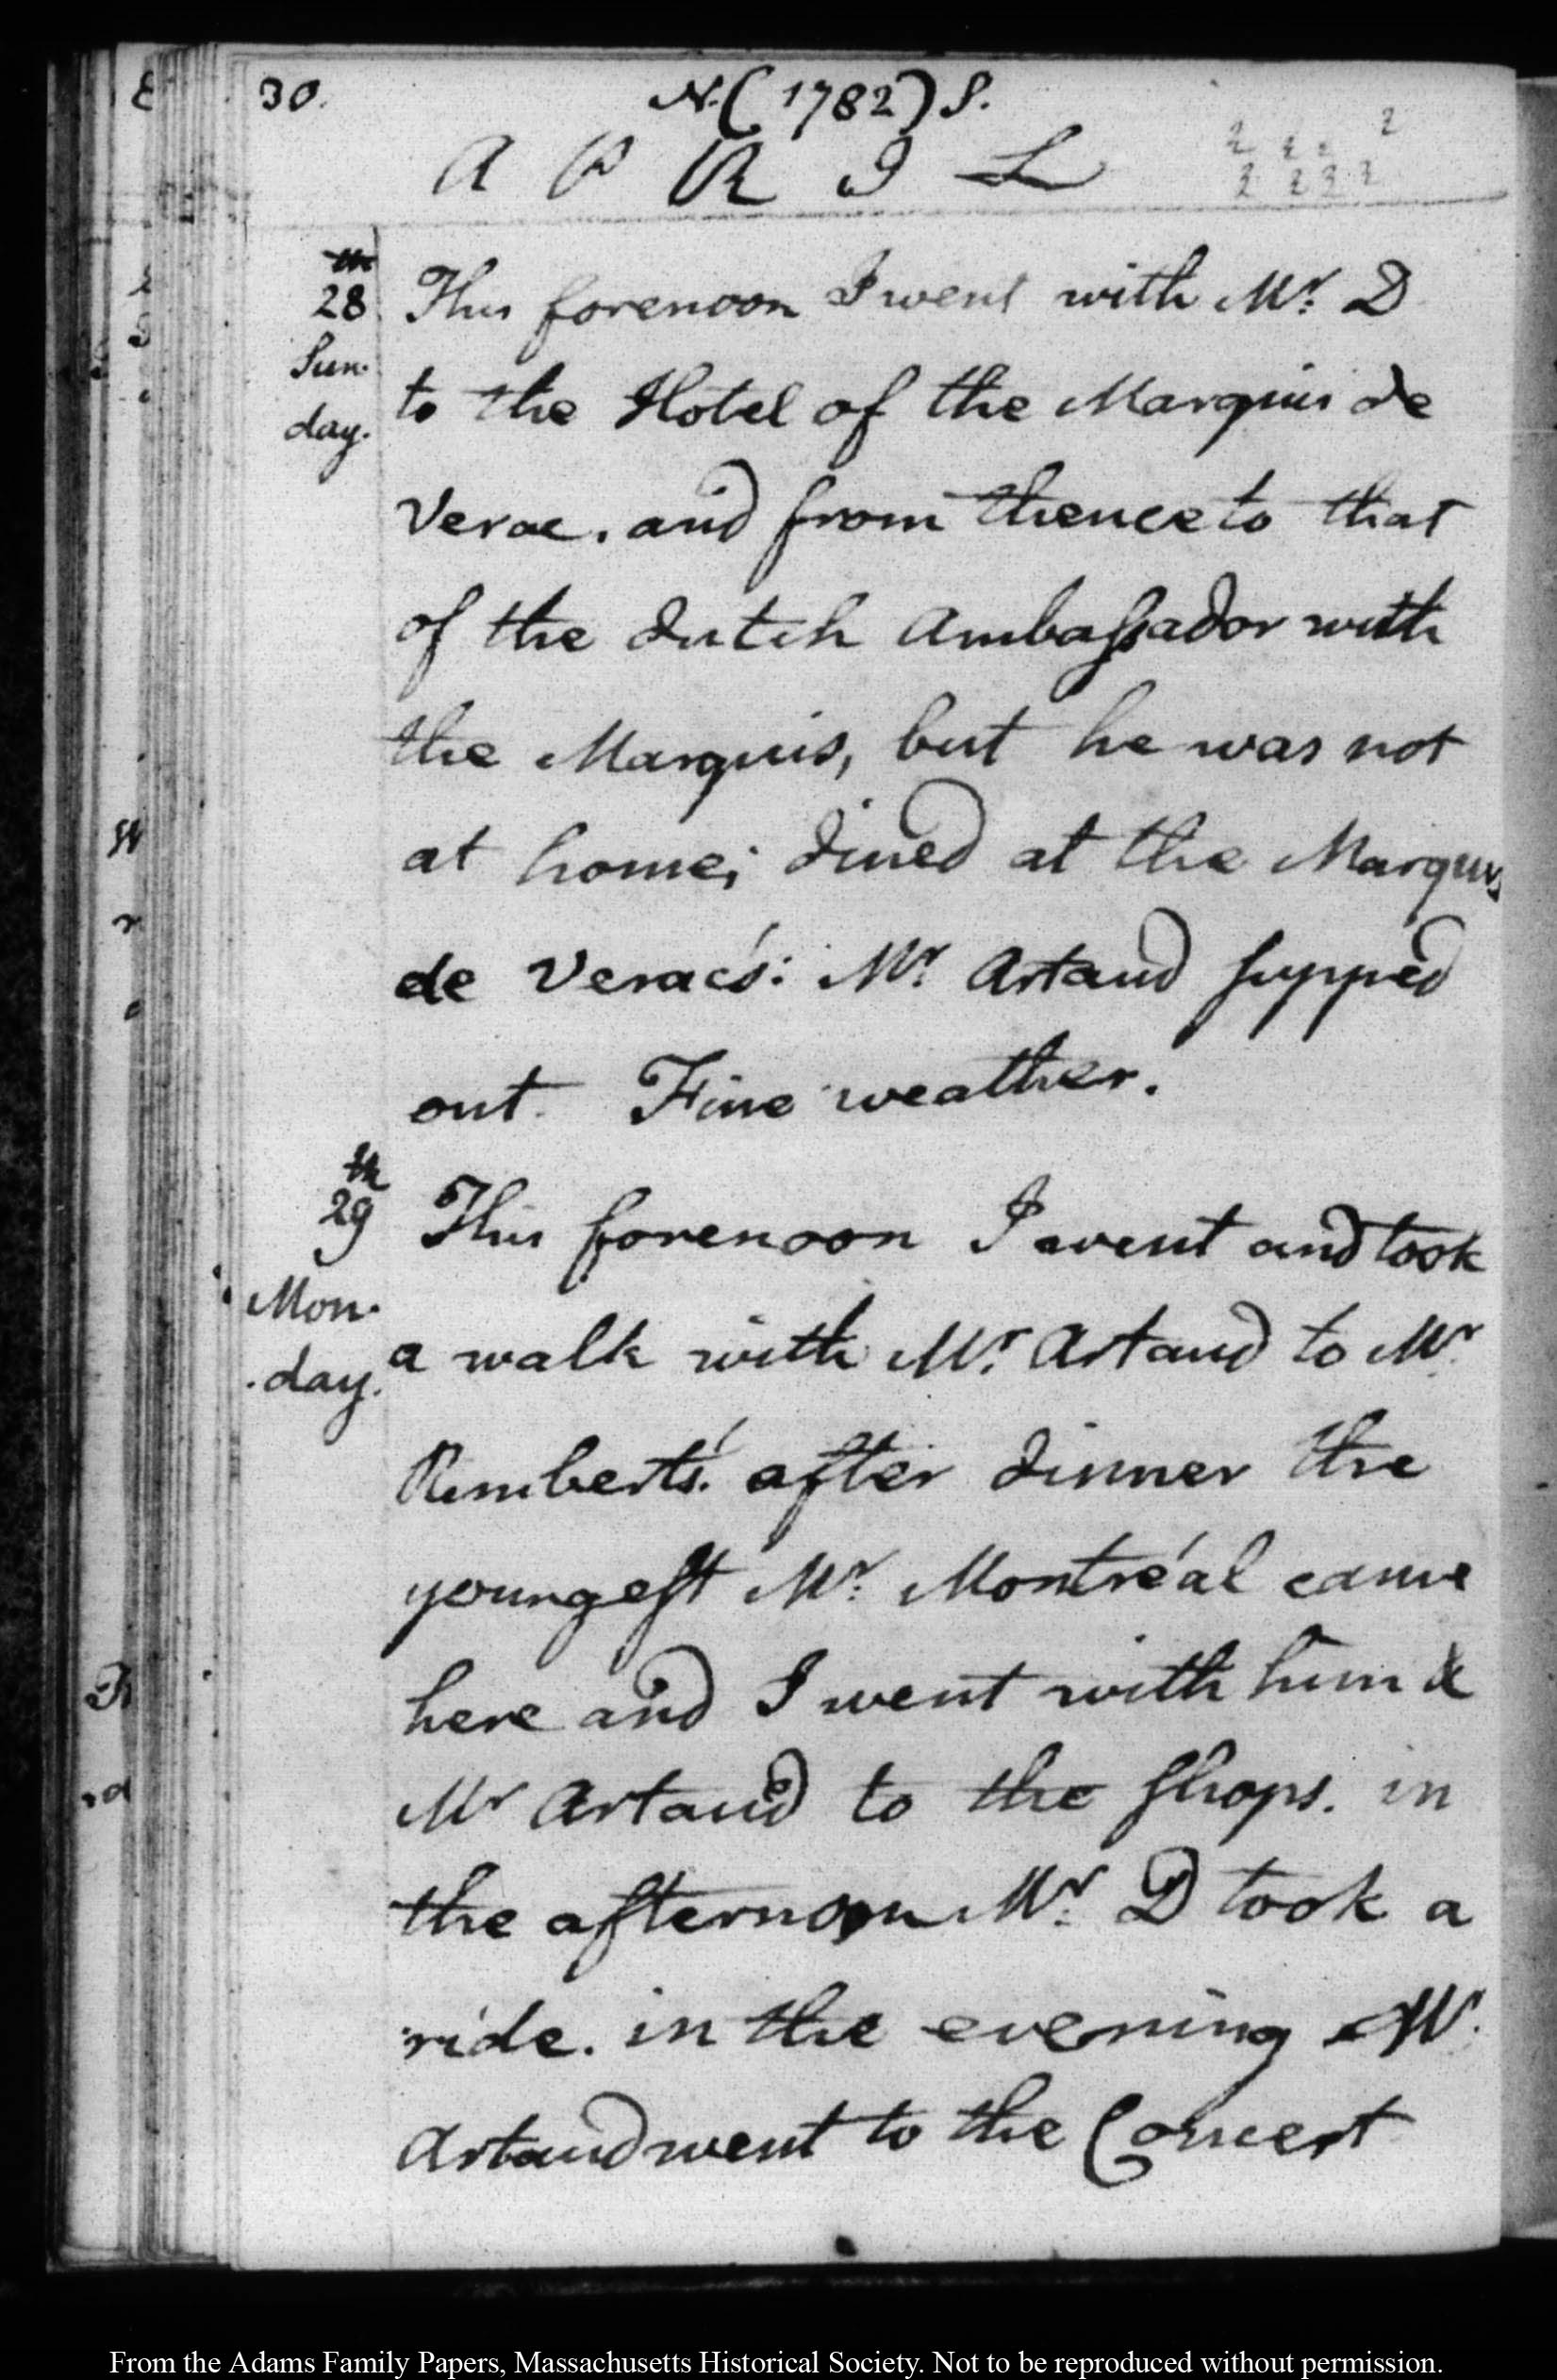 30.
N. (1782) S.
A P R I L
2 2 2 2
2 2 2 2
th
28
Sun-
day.
This forenoon I went with Mr. D
to the Hotel of the Marquis de
Verac. and from thence to that
of the dutch Ambaſsador with
the Marquis, but he was not
at home; dined at the Marquis
de Verac's: Mr. Artaud ſupped
out. Fine weather.
th
29
Mon-
day.
This forenoon I went and took
a walk with Mr. Artaud to Mr.
Rimberts'. after dinner the
youngeſt Mr. Montréal came
here and I went with him &
Mr Artaud to the ſhops. in
the afternoon Mr. D took a
ride. in the evening Mr.
Artaud went to the Concert
From the Adams Family Papers, Massachusetts Historical Society. Not to be reproduced without permission.